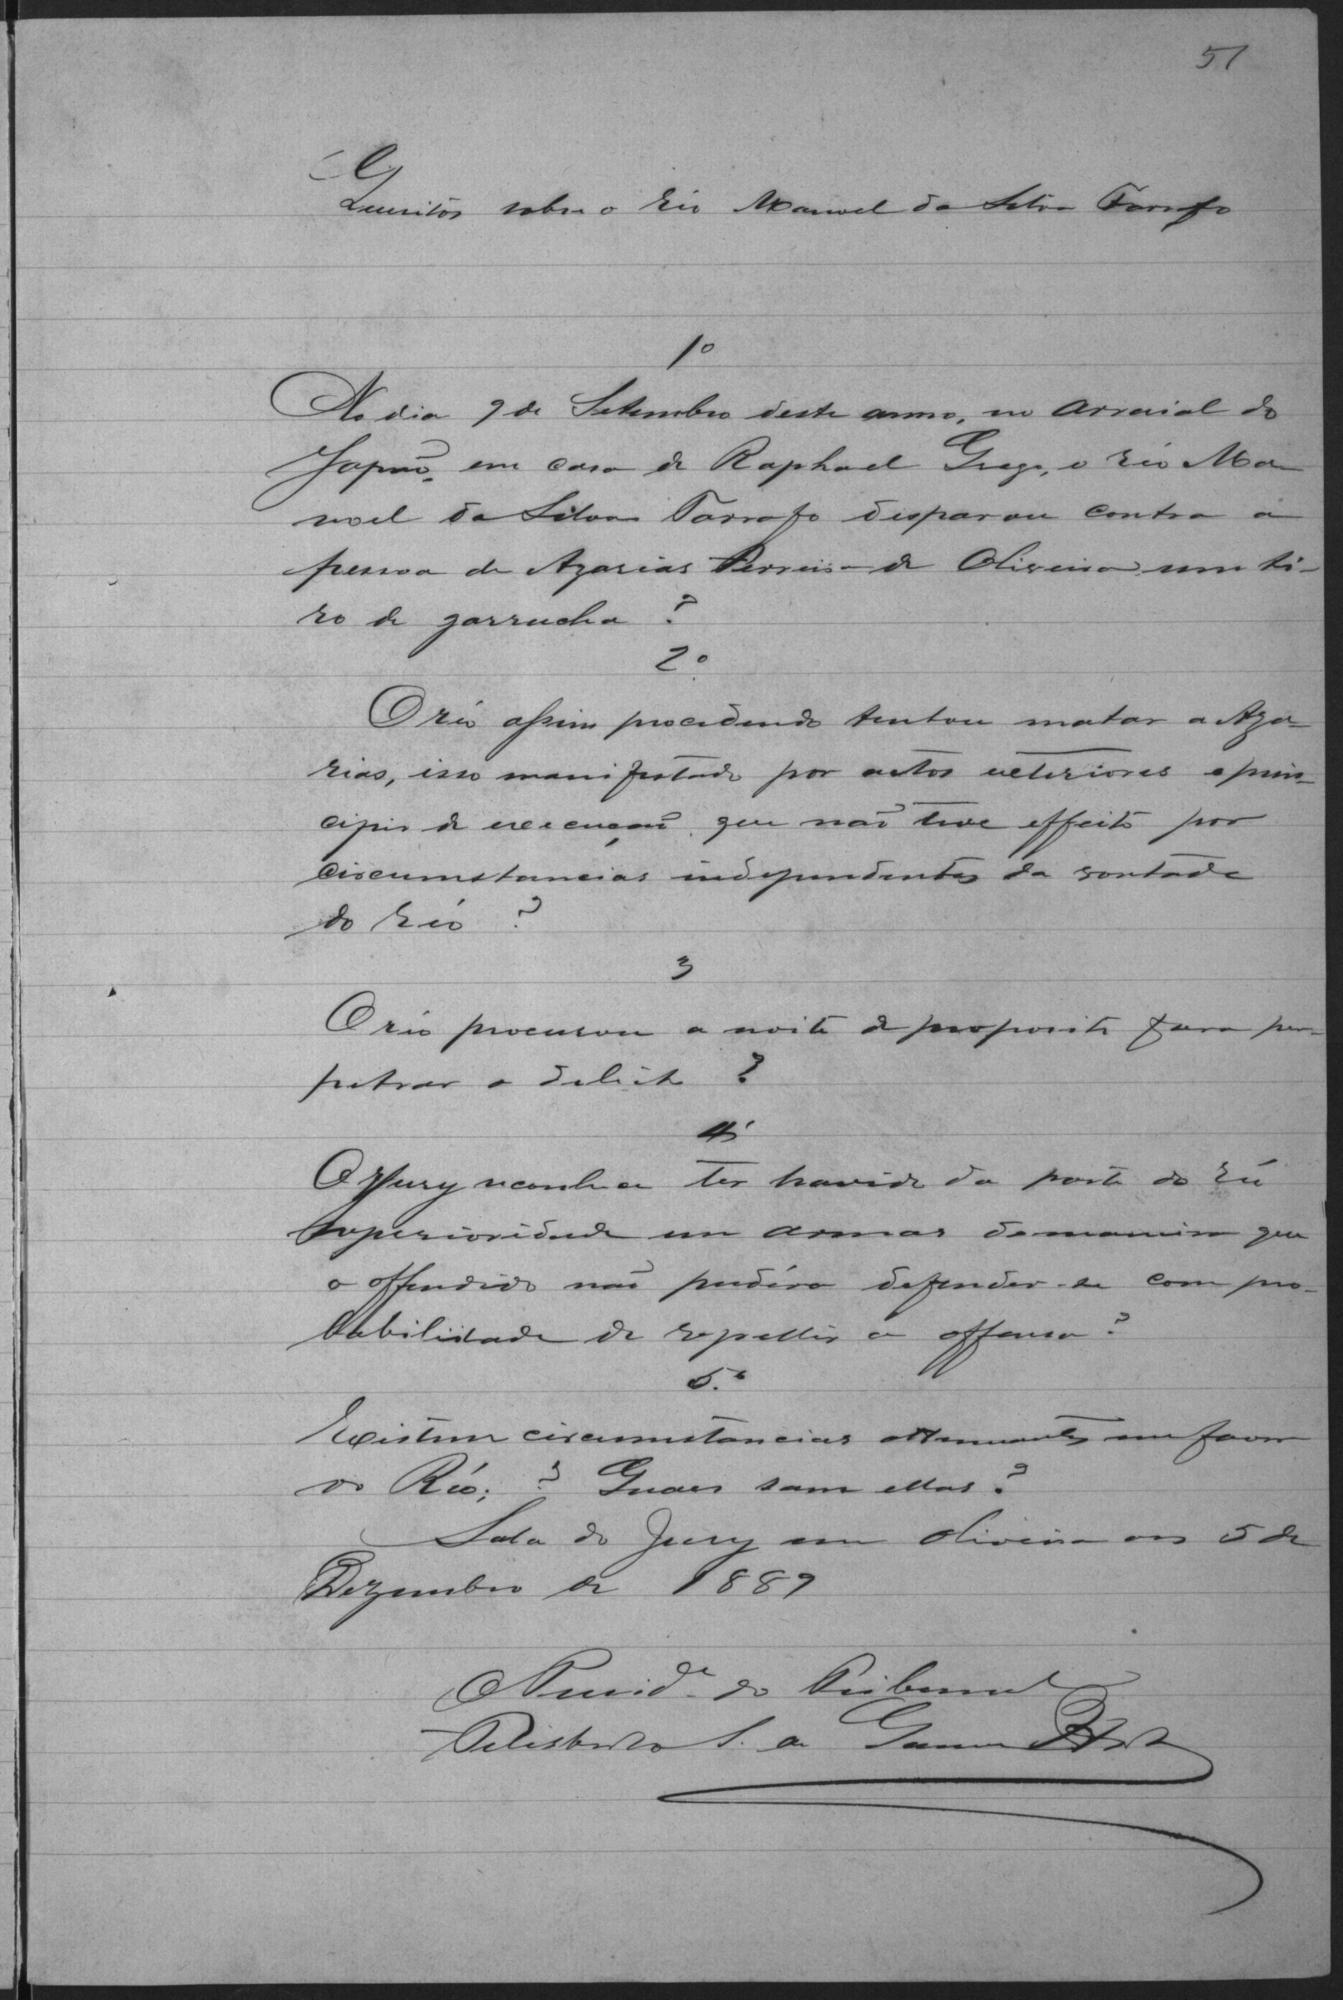 51
Quesitos sobre o réo Manoel da Silva Tarrafo
1º
No dia 9 de Setembro deste anno, no arraial do
Japão, em casa de Raphael Grego, o réo Ma-
noel da Silva Tarrafo desparou contra a
pessoa de Azarias Ferreira de Oliveira um ti-
ro de garrucha?
2º
O réo assim procedendo tentou matar a Aza-
rias, isso manifestado por actos exteriores e prin-
cipio de execução, que não teve effeito por
circumstancias independentes da vontade
do réo?
3
O réo procurou a noite de proposito para per-
petrar o delicto?
4º
O Jury reconhece ter havido da parte do réu
superioridade em armas de maneira que
o offendido não pudéra defender-se com pro-
babilidade de repellir a offensa?
5º
Existem circumstancias attenuantes em favor
do Réo; ? Quaes sam ellas?
Sala do Jury em Oliveira aos 5 de
Dezembro de 1889
O Presid.e do Tribunal
Felisberto S. da Gama